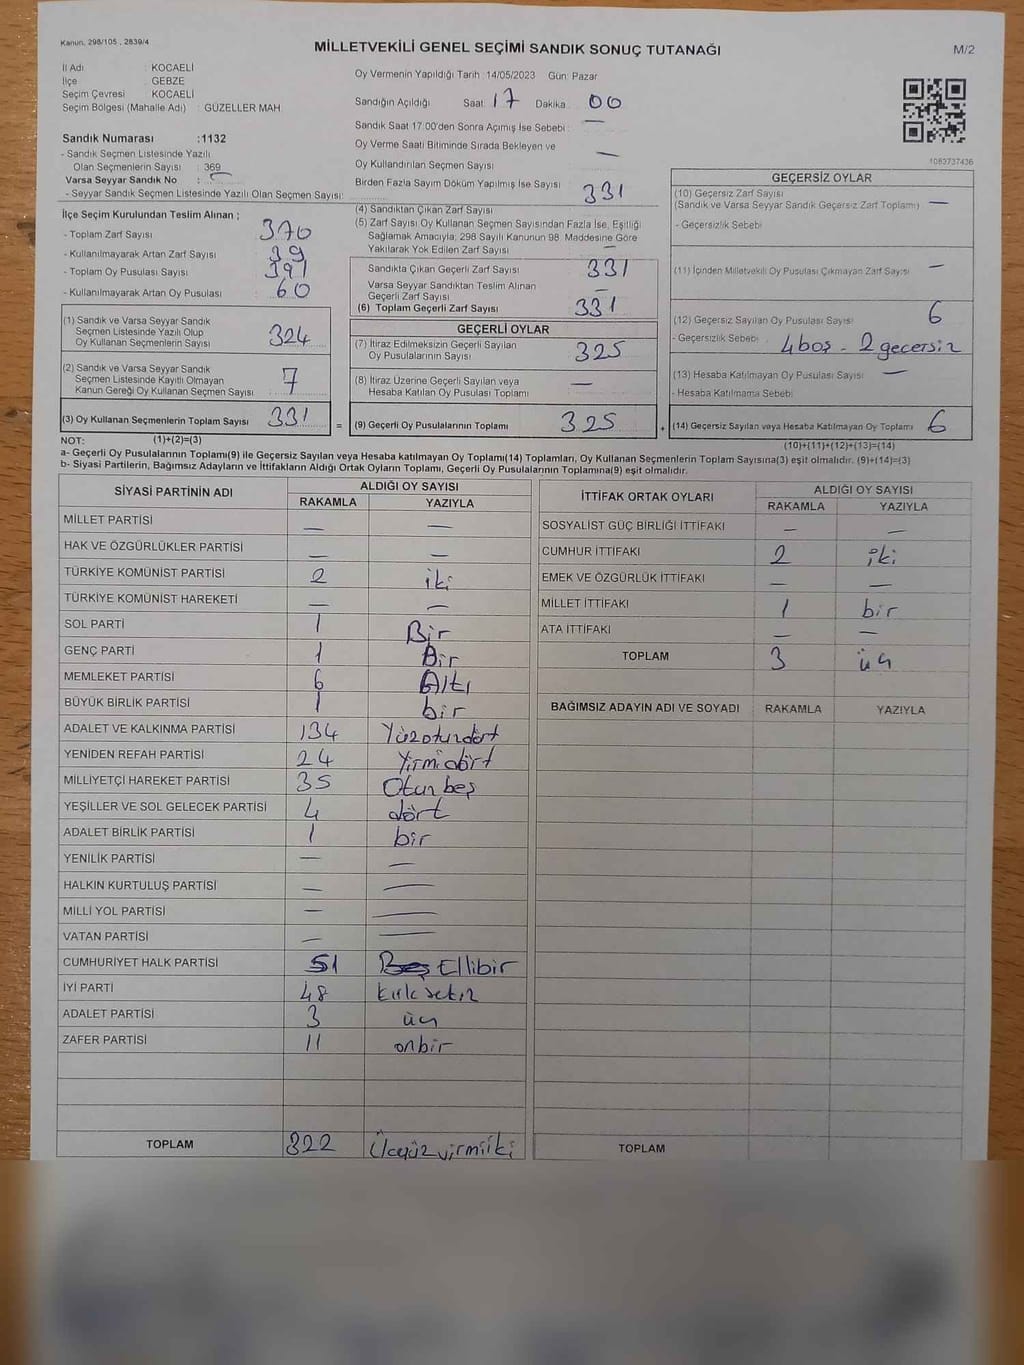 Kanun. 298/105 , 2839/4
MİLLETVEKİLİ GENEL SEÇİMİ SANDIK SONUÇ TUTANAĞI
M/2
İl Adı : KOCAELİ
İlçe : GEBZE
Seçim Çevresi : KOCAELİ
Seçim Bölgesi (Mahalle Adı) : GÜZELLER MAH
Sandık Numarası :1132
- Sandık Seçmen Listesinde Yazılı
Olan Seçmenlerin Sayısı : 369
Varsa Seyyar Sandık No : —
- Seyyar Sandık Seçmen Listesinde Yazılı Olan Seçmen Sayısı:
Oy Vermenin Yapıldığı Tarih : 14/05/2023 Gün: Pazar
Sandığın Açıldığı Saat 17 Dakika 00
Sandık Saat 17:00'den Sonra Açımış İse Sebebi : —
Oy Verme Saati Bitiminde Sırada Bekleyen ve
Oy Kullandırılan Seçmen Sayısı —
Birden Fazla Sayım Döküm Yapılmış İse Sayısı
1083737436
İlçe Seçim Kurulundan Teslim Alınan ;
- Toplam Zarf Sayısı 370
- Kullanılmayarak Artan Zarf Sayısı 39
- Toplam Oy Pusulası Sayısı 391
- Kullanılmayarak Artan Oy Pusulası 60
(1) Sandık ve Varsa Seyyar Sandık
Seçmen Listesinde Yazılı Olup
Oy Kullanan Seçmenlerin Sayısı 324
(2) Sandık ve Varsa Seyyar Sandık
Seçmen Listesinde Kayıtlı Olmayan
Kanun Gereği Oy Kullanan Seçmen Sayısı 7
(3) Oy Kullanan Seçmenlerin Toplam Sayısı 331 =
(4) Sandıktan Çıkan Zarf Sayısı 331
(5) Zarf Sayısı Oy Kullanan Seçmen Sayısından Fazla İse, Eşitliği
Sağlamak Amacıyla; 298 Sayılı Kanunun 98. Maddesine Göre
Yakılarak Yok Edilen Zarf Sayısı —
Sandıkta Çıkan Geçerli Zarf Sayısı 331
Varsa Seyyar Sandıktan Teslim Alınan
Geçerli Zarf Sayısı —
(6) Toplam Geçerli Zarf Sayısı 331
GEÇERLİ OYLAR
(7) İtiraz Edilmeksizin Geçerli Sayılan
Oy Pusulalarının Sayısı 325
(8) İtiraz Üzerine Geçerli Sayılan veya
Hesaba Katılan Oy Pusulası Toplamı —
(9) Geçerli Oy Pusulalarının Toplamı 325 +
GEÇERSİZ OYLAR
(10) Geçersiz Zarf Sayısı
(Sandık ve Varsa Seyyar Sandık Geçersiz Zarf Toplamı) —
- Geçersizlik Sebebi
(11) İçinden Milletvekili Oy Pusulası Çıkmayan Zarf Sayısı —
(12) Geçersiz Sayılan Oy Pusulası Sayısı 6
- Geçersizlik Sebebi 4boş - 2 geçersiz
(13) Hesaba Katılmayan Oy Pusulası Sayısı —
- Hesaba Katılmama Sebebi
(14) Geçersiz Sayılan veya Hesaba Katılmayan Oy Toplamı 6
NOT: (1)+(2)=(3) (10)+(11)+(12)+(13)=(14)
a- Geçerli Oy Pusulalarının Toplamı(9) ile Geçersiz Sayılan veya Hesaba katılmayan Oy Toplamı(14) Toplamları, Oy Kullanan Seçmenlerin Toplam Sayısına(3) eşit olmalıdır. (9)+(14)=(3)
b- Siyasi Partilerin, Bağımsız Adayların ve İttifakların Aldığı Ortak Oyların Toplamı, Geçerli Oy Pusulalarının Toplamına(9) eşit olmalıdır.
SİYASİ PARTİNİN ADI ALDIĞI OY SAYISI
RAKAMLA YAZIYLA
MİLLET PARTİSİ — —
HAK VE ÖZGÜRLÜKLER PARTİSİ — —
TÜRKİYE KOMÜNİST PARTİSİ 2 iki
TÜRKİYE KOMÜNİST HAREKETİ — —
SOL PARTİ 1 Bir
GENÇ PARTİ 1 Bir
MEMLEKET PARTİSİ 6 Altı
BÜYÜK BİRLİK PARTİSİ 1 bir
ADALET VE KALKINMA PARTİSİ 134 Yüzotuzdört
YENİDEN REFAH PARTİSİ 24 Yirmidört
MİLLİYETÇİ HAREKET PARTİSİ 35 Otuzbeş
YEŞİLLER VE SOL GELECEK PARTİSİ 4 dört
ADALET BİRLİK PARTİSİ 1 bir
YENİLİK PARTİSİ — —
HALKIN KURTULUŞ PARTİSİ — —
MİLLİ YOL PARTİSİ — —
VATAN PARTİSİ — —
CUMHURİYET HALK PARTİSİ 51 Beş Ellibir
İYİ PARTİ 48 kırksekiz
ADALET PARTİSİ 3 üç
ZAFER PARTİSİ 11 onbir
TOPLAM 322 Üçyüzyirmiiki
İTTİFAK ORTAK OYLARI ALDIĞI OY SAYISI
RAKAMLA YAZIYLA
SOSYALİST GÜÇ BİRLİĞİ İTTİFAKI — —
CUMHUR İTTİFAKI 2 iki
EMEK VE ÖZGÜRLÜK İTTİFAKI — —
MİLLET İTTİFAKI 1 bir
ATA İTTİFAKI — —
TOPLAM 3 üç
BAĞIMSIZ ADAYIN ADI VE SOYADI RAKAMLA YAZIYLA
TOPLAM